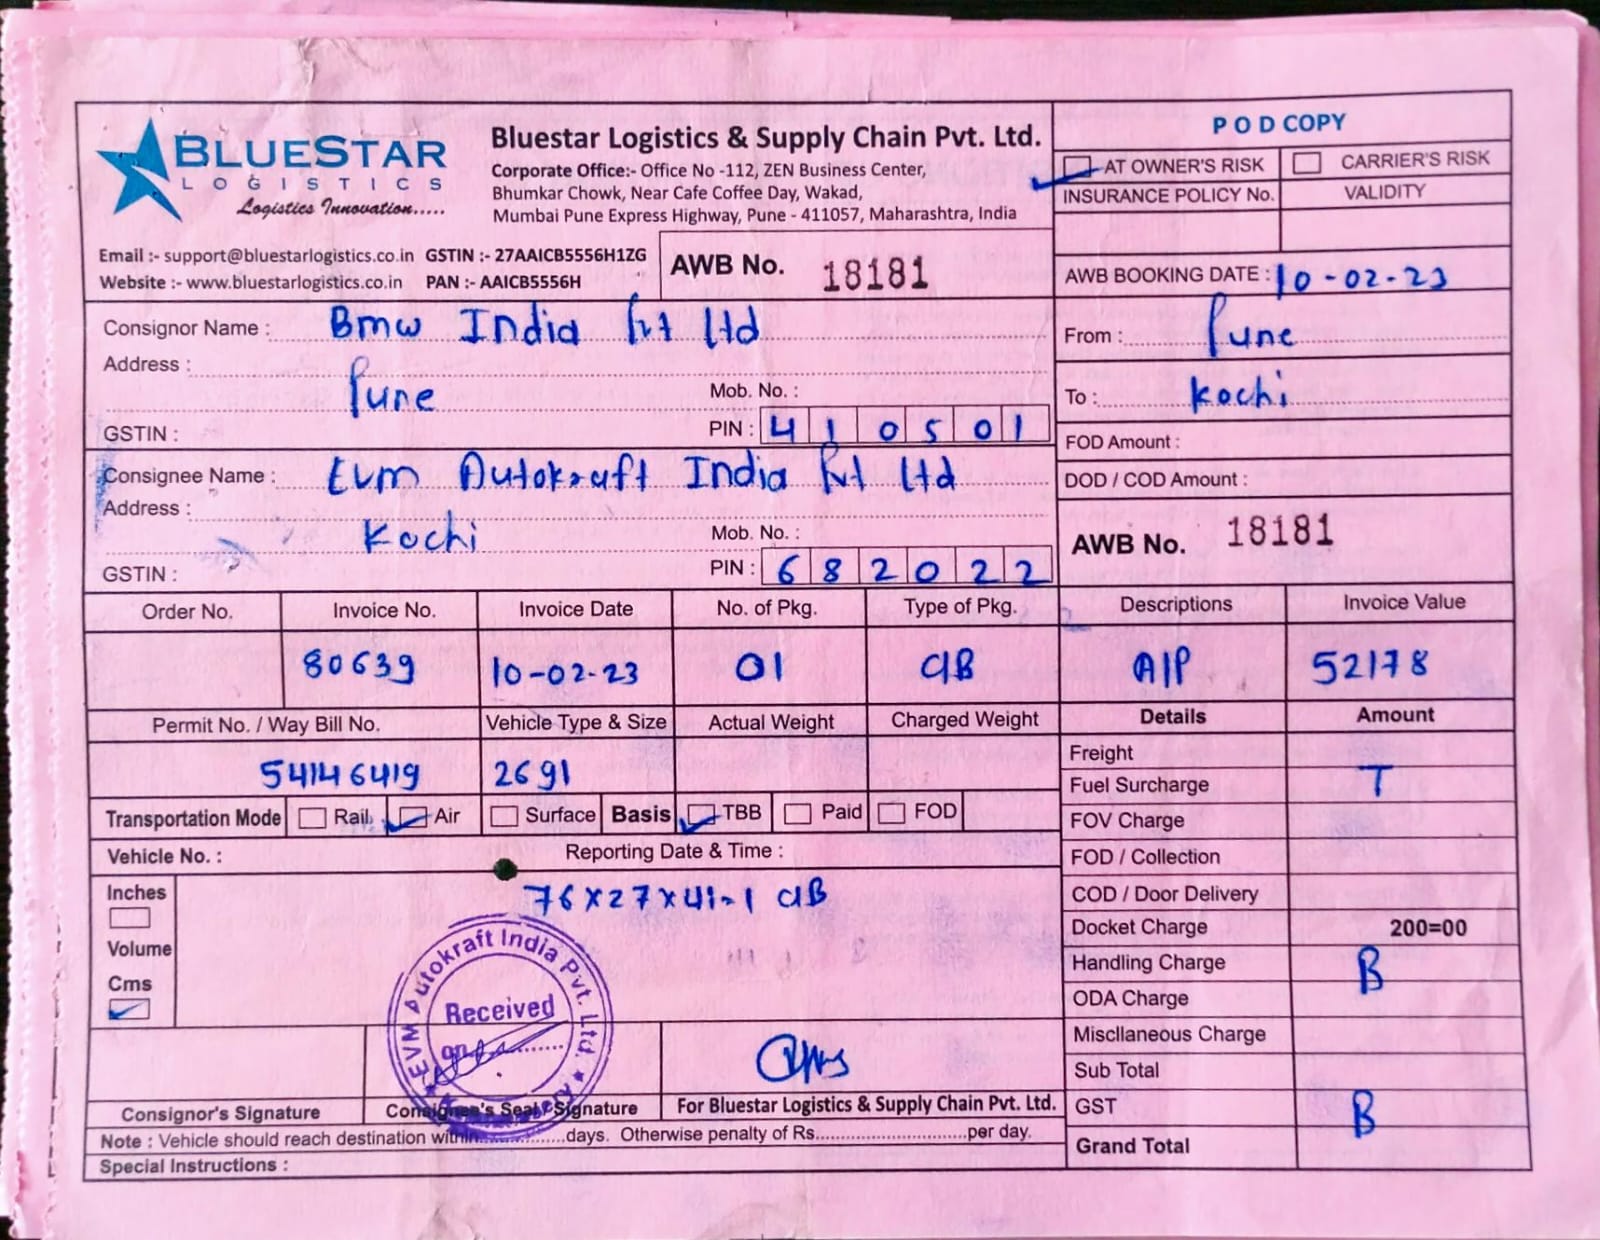 BLUESTAR
LOGISTICS
Logistics Innovation.....
Bluestar Logistics & Supply Chain Pvt. Ltd.
Corporate Office:- Office No -112, ZEN Business Center,
Bhumkar Chowk, Near Cafe Coffee Day, Wakad,
Mumbai Pune Express Highway, Pune - 411057, Maharashtra, India
POD COPY
AT OWNER'S RISK CARRIER'S RISK
INSURANCE POLICY No. VALIDITY
Email :- support@bluestarlogistics.co.in GSTIN :- 27AAICB5556H1ZG
Website :- www.bluestarlogistics.co.in PAN :- AAICB5556H
AWB No. 18181
AWB BOOKING DATE : 10-02-23
Consignor Name : Bmw India Pvt Ltd
Address :
Pune
Mob. No. :
GSTIN :
PIN : 410501
From : Pune
To : Kochi
FOD Amount :
Consignee Name : Evm Autokraft India Pvt Ltd
Address :
Kochi
Mob. No. :
GSTIN :
PIN : 682022
DOD / COD Amount :
AWB No. 18181
Order No. Invoice No. Invoice Date No. of Pkg. Type of Pkg. Descriptions Invoice Value
80639 10-02-23 01 C/B A/P 52178
Permit No. / Way Bill No. Vehicle Type & Size Actual Weight Charged Weight Details Amount
54146419 2691
Freight
Fuel Surcharge T
FOV Charge
FOD / Collection
COD / Door Delivery
Docket Charge 200=00
Handling Charge B
ODA Charge
Miscllaneous Charge
Sub Total
GST B
Grand Total
Transportation Mode Rail Air Surface Basis TBB Paid FOD
Vehicle No. : Reporting Date & Time :
Inches
Volume
Cms
76x27x41-1 C/B
EVM Autokraft India Pvt. Ltd.
Received
on
Consignor's Signature Consignee's Seal / Signature For Bluestar Logistics & Supply Chain Pvt. Ltd.
Note : Vehicle should reach destination within..............days. Otherwise penalty of Rs..........................per day.
Special Instructions :